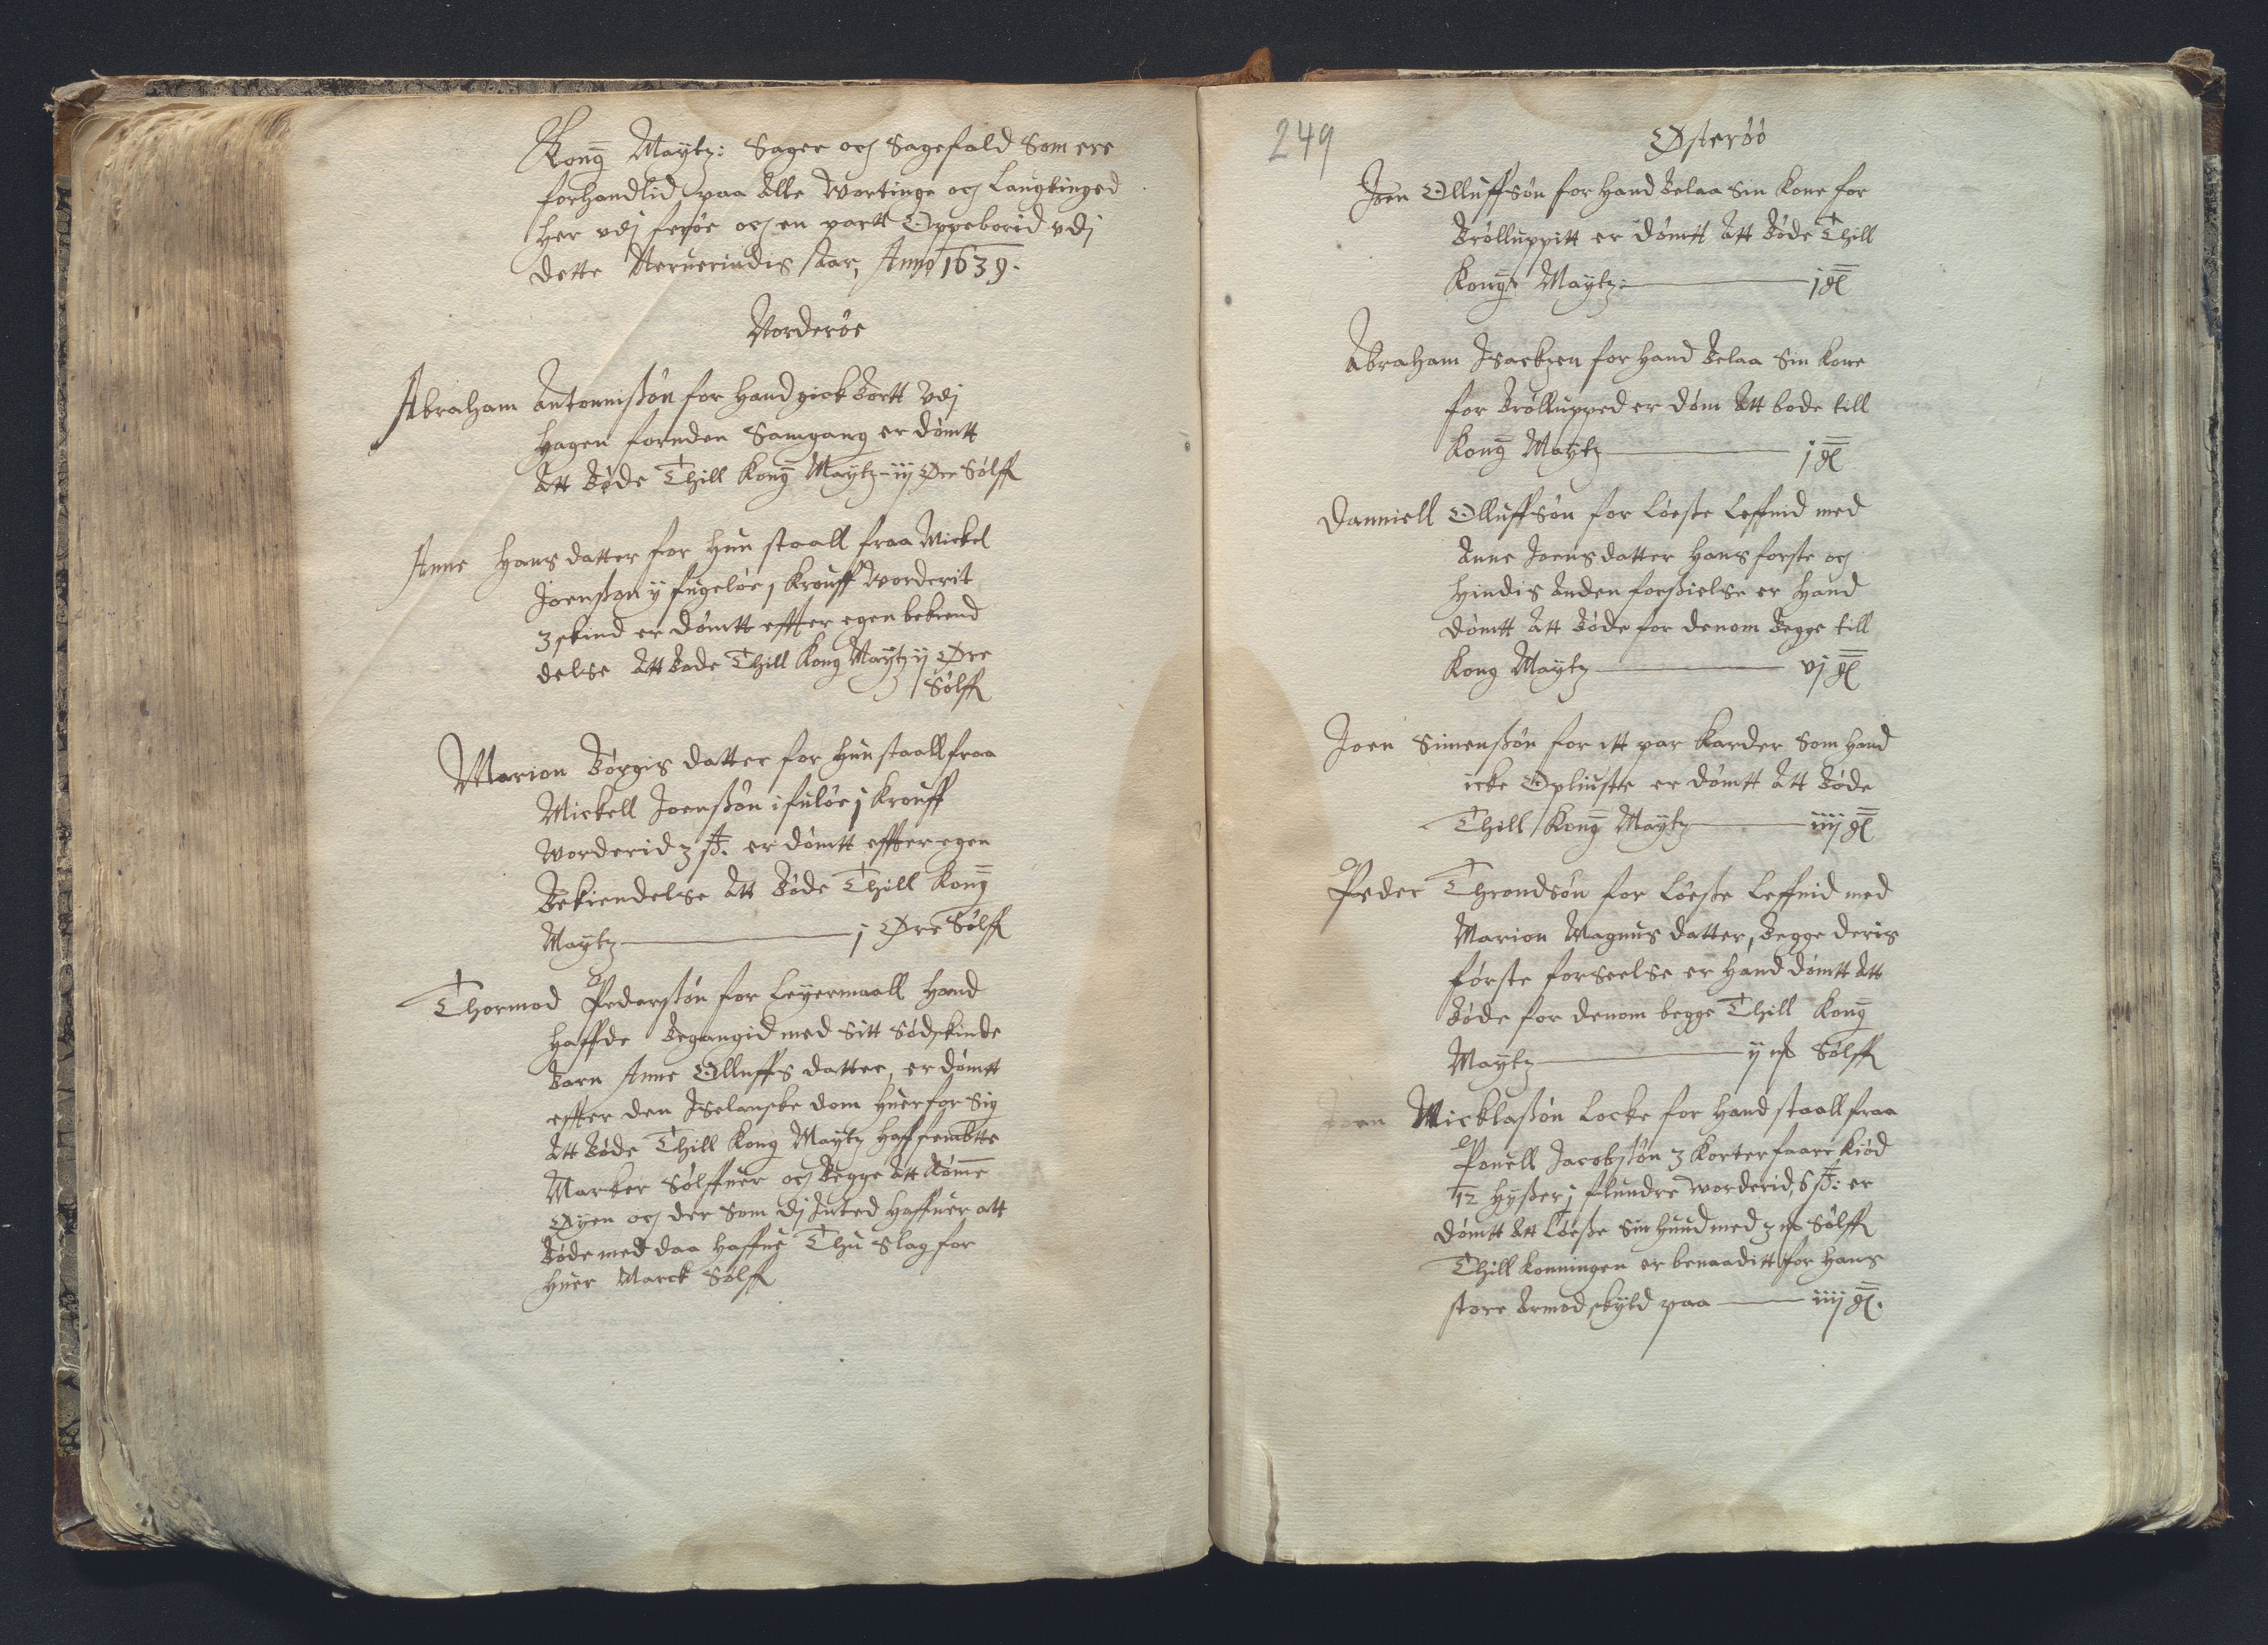 Kong Maytz: Sager och Sagefald Som ere
forhandlid paa Alle Wortinge och Laugtinged
her vdj ferøe och en partt Oppeborid vdj
dette Neruerindis Aar, Anno 1639.
Norderøe
Abraham Antonnissøn for hand gick Bortt vdj
hagen foruden Samgang er dømtt
Att Bøde Thill Kong Maytz - iij Øre Sølff
Anne hans datter for hun staall fraa Mickel
Joensson y fugeløe 1 krouff worderit
3 skind er dømtt effter egen bekend
delse Att Bøde Thill Kong Maytz ij Øre
Sølff
Marion Børgis datter for hun staall fraa
Mickell Joenssøn i fuløe j krouff
worderid 3 sk. er dømtt effter egen
Bekiendelse Att Bøde Thill Kong
Maytz j Øre Sølff
Thormod Pederssøn for Leyermaall hand
haffde Begangid med Sitt Sødskinde
Barn Anne Olluffs datter, er dømtt
effter den Iselanske dom huer for Sig
Att Bøde Thill Kong Maytz halffembtte
Marker Sølffuer och Begge Att Røme
Øyen och der Som dj Inted haffuer att
Bøde med daa haffue Thu Slag for
huer Marck Sølff
249
Østerøö
Joen Olluffsøn for hand Belaa Sin kone for
Brølluppitt er dømtt Att Bøde Thill
Kongs Maytz: j gl
Abraham Isackzen for hand Belaa Sin kone
for Brøllupped er døm Att bode till
Kong Maytz j gl
Danniell Olluffsøn for Løeste Leffnid med
Anne Joens datter hans forste och
hindis Anden forssielse er hand
dømtt Att Bøde for denom Begge till
Kong Maytz vj gl
Joen Simenssøn for itt par karder Som hand
icke Opliuste er dømtt Att Bøde
Thill Kong Maytz iiij gl
Peder Throndsøn for Løeste Leffnid med
Marion Magnus datter, Begge deris
første forseelse er hand dømtt Att
Bøde for denom begge Thill Kong
Maytz ij mk Sølff
Joen Micklassøn Locke for hand staall fraa
Pouell Jacobssøn 3 korter faare kiød
12 hysser j flundre worderid 6 sk: er
dømtt Att Løesse Sin huud med 3 mk Sølff
Thill Konningen er benaaditt for hans
store Armod skyld paa iiij gl.